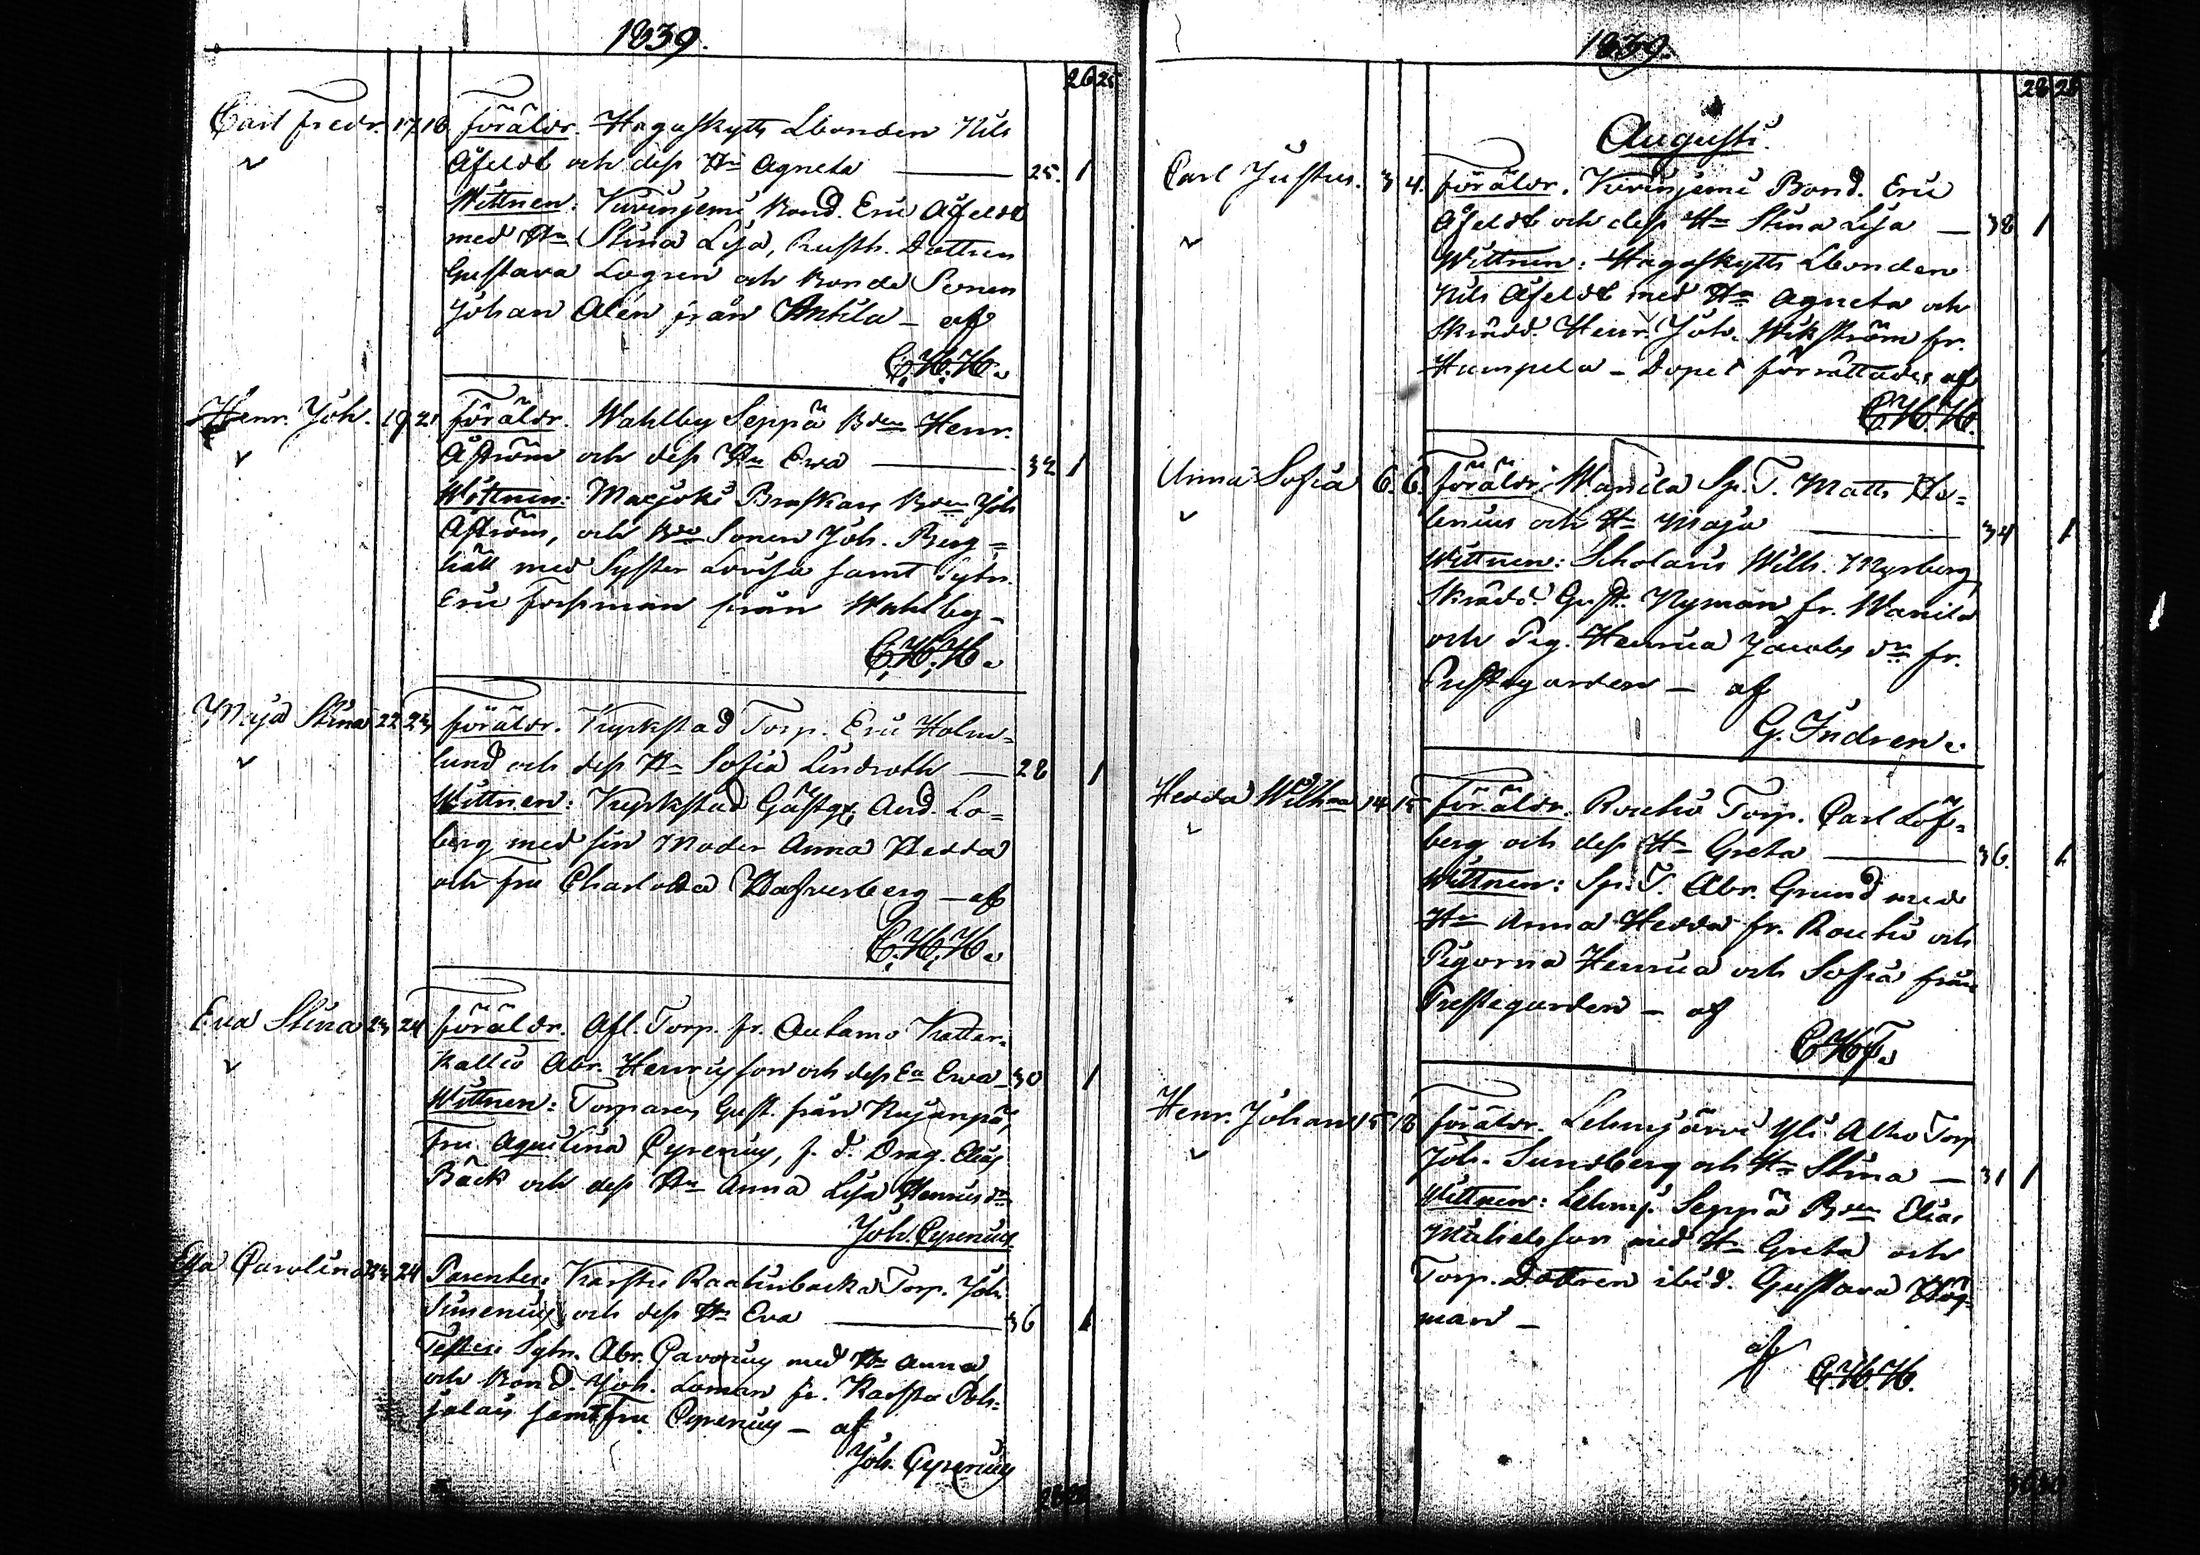 1839.
26 25
Carl Fredr. 17 18 Föräldr. Haguskytts Lbonden Nils
Åfeldt och dess Hu Agneta — 25. 1
Wittnen: Kurinjemi Bond. Eric Åfeldt
med Hu Stina Lisa, Rusth. Dottren
Gustava Logren och Bonde Sonen
Johan Alén från Anhila — af
C.H.H.
Henr. Joh. 19 21 Föräldr. Wahlby Seppä Bden Henr.
Åström och dess Hu Ewa — 32 1
Wittnen: Marjoki Braskars Bden Joh
Åström, och Bde Sonen Joh. Berg=
häll med Syster Lovisa samt Sytn.
Eric Forsman från Wahlby —
C.H.H.
Maja Stina 22 23 Föräldr. Kyrkstad Torp. Eric Holm=
lund och dess Hu Sofia Lindroth — 28 1
Wittnen: Kyrkstad Gästg. And. Lo=
berg med sin Moder Anna Hedda
och fru Charlotta Hafverberg — af
C.H.H.
Eva Stina 23 24 Föräldr. Afl. Torp. fr. Autamo Katter=
kallio Abr. Henricsson och dess Ea Ewa — 30 1
Wittnen: Torparen Gust. från Kujanpä,
fru Aquilina Cyrenius, f. d. Drag. Elias
Bäck och dess Hu Anna Lisa Henricsdr
Joh. Cyrenius
Efva Carolina 23 24 Parentes: Karstu Raatinbacka Torp. Joh.
Simenius och dess Hu Eva — 36 1
Testes: Sytn. Abr. Gavonius med Hu Anna
och Bond. Joh. Loman fr. Karstu Poh=
jolais samt Fru Cyrenius — af
Joh. Cyrenius
28 28
1839.
28 28
Augusti.
Carl Justus. 3 4. Föräldr. Kurinjemi Bond. Eric
Åfeldt och dess Hu Stina Lisa — 38 1
Wittnen: Haguskytts Lbonden
Nils Åfeldt med Hu Agneta och
Skrädd. Henr. Joh. Wikström fr.
Humpela — Dopet förrättades af
C.H.H.
Anna Sofia 6. 6. Föräldr. Wanila Sp. T. Matts Ho=
lenius och Hu Maja — 34 1
Wittnen: Scholaris Wilh. Myrberg,
Skrädd. Gust. Nyman fr. Wanila
och Pig. Henrica Jacobs dr fr.
Prestegården — af
G. Indren.
Hedda Wilhna 14 15 Föräldr. Rouhio Torp. Carl Löf=
berg och dess Hu Greta — 36. 1
Wittnen: Sp. T. Abr. Grund med
Hu Anna Hedda fr. Rouhio och
Pigorna Henrica och Sofia från
Prestegården — af
C.H.H.
Henr. Johan 15 18 Föräldr. Lehmjärvi Yli Alho Torp
Joh. Sundberg och Hu Stina — 31 1
Wittnen: Lehmj. Seppä Bden Elias
Michelsson med Hu Greta och
Torp. Dottren ibid. Gustava Hög=
man —
af C.H.H.